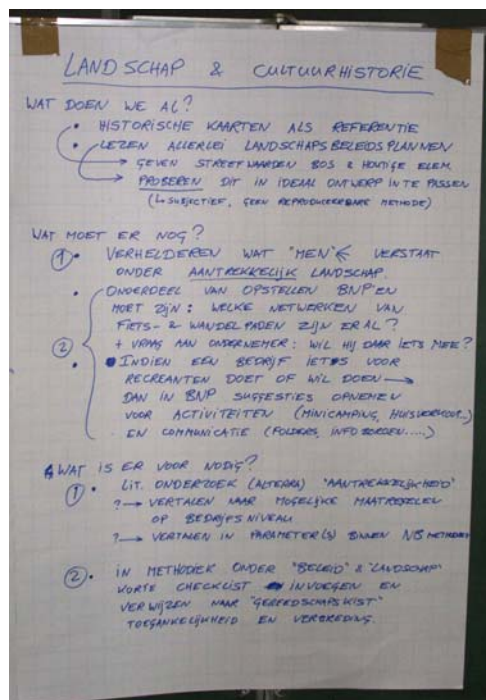 LANDSCHAP & CULTUURHISTORIE
WAT DOEN WE AL?
• HISTORISCHE KAARTEN ALS REFERENTIE
• LEZEN ALLERLEI LANDSCHAPSBELEIDSPLANNEN
→ GEVEN STREEFWAARDEN BOS & HOUTIGE ELEM.
→ PROBEREN DIT IN IDEAAL ONTWERP IN TE PASSEN
(↳ SUBJECTIEF, GEEN REPRODUCEERBARE METHODE)
WAT MOET ER NOG?
① • VERHELDEREN WAT "MEN" VERSTAAT
ONDER AANTREKKELIJK LANDSCHAP.
• ONDERDEEL VAN OPSTELLEN BNP'EN
MOET ZIJN: WELKE NETWERKEN VAN
② FIETS- & WANDELPADEN ZIJN ER AL?
+ VRAAG AAN ONDERNEMER: WIL HIJ DAAR IETS MEE?
• INDIEN EEN BEDRIJF IETS VOOR
RECREANTEN DOET OF WIL DOEN →
DAN IN BNP SUGGESTIES OPNEMEN
VOOR ACTIVITEITEN (MINICAMPING, HUISVERKOOP...)
EN COMMUNICATIE (FOLDERS, INFOBORDEN.....)
WAT IS ER VOOR NODIG?
① • LIT. ONDERZOEK (ALTERRA) "AANTREKKELIJKHEID"
? → VERTALEN NAAR MOGELIJKE MAATREGELEN
OP BEDRIJFSNIVEAU
? → VERTALEN IN PARAMETER(S) BINNEN NB METHODIEK
② • IN METHODIEK ONDER "BELEID" & "LANDSCHAP"
KORTE CHECKLIST INVOEGEN EN
VERWIJZEN NAAR "GEREEDSCHAPSKIST"
TOEGANKELIJKHEID EN VERBREDING.